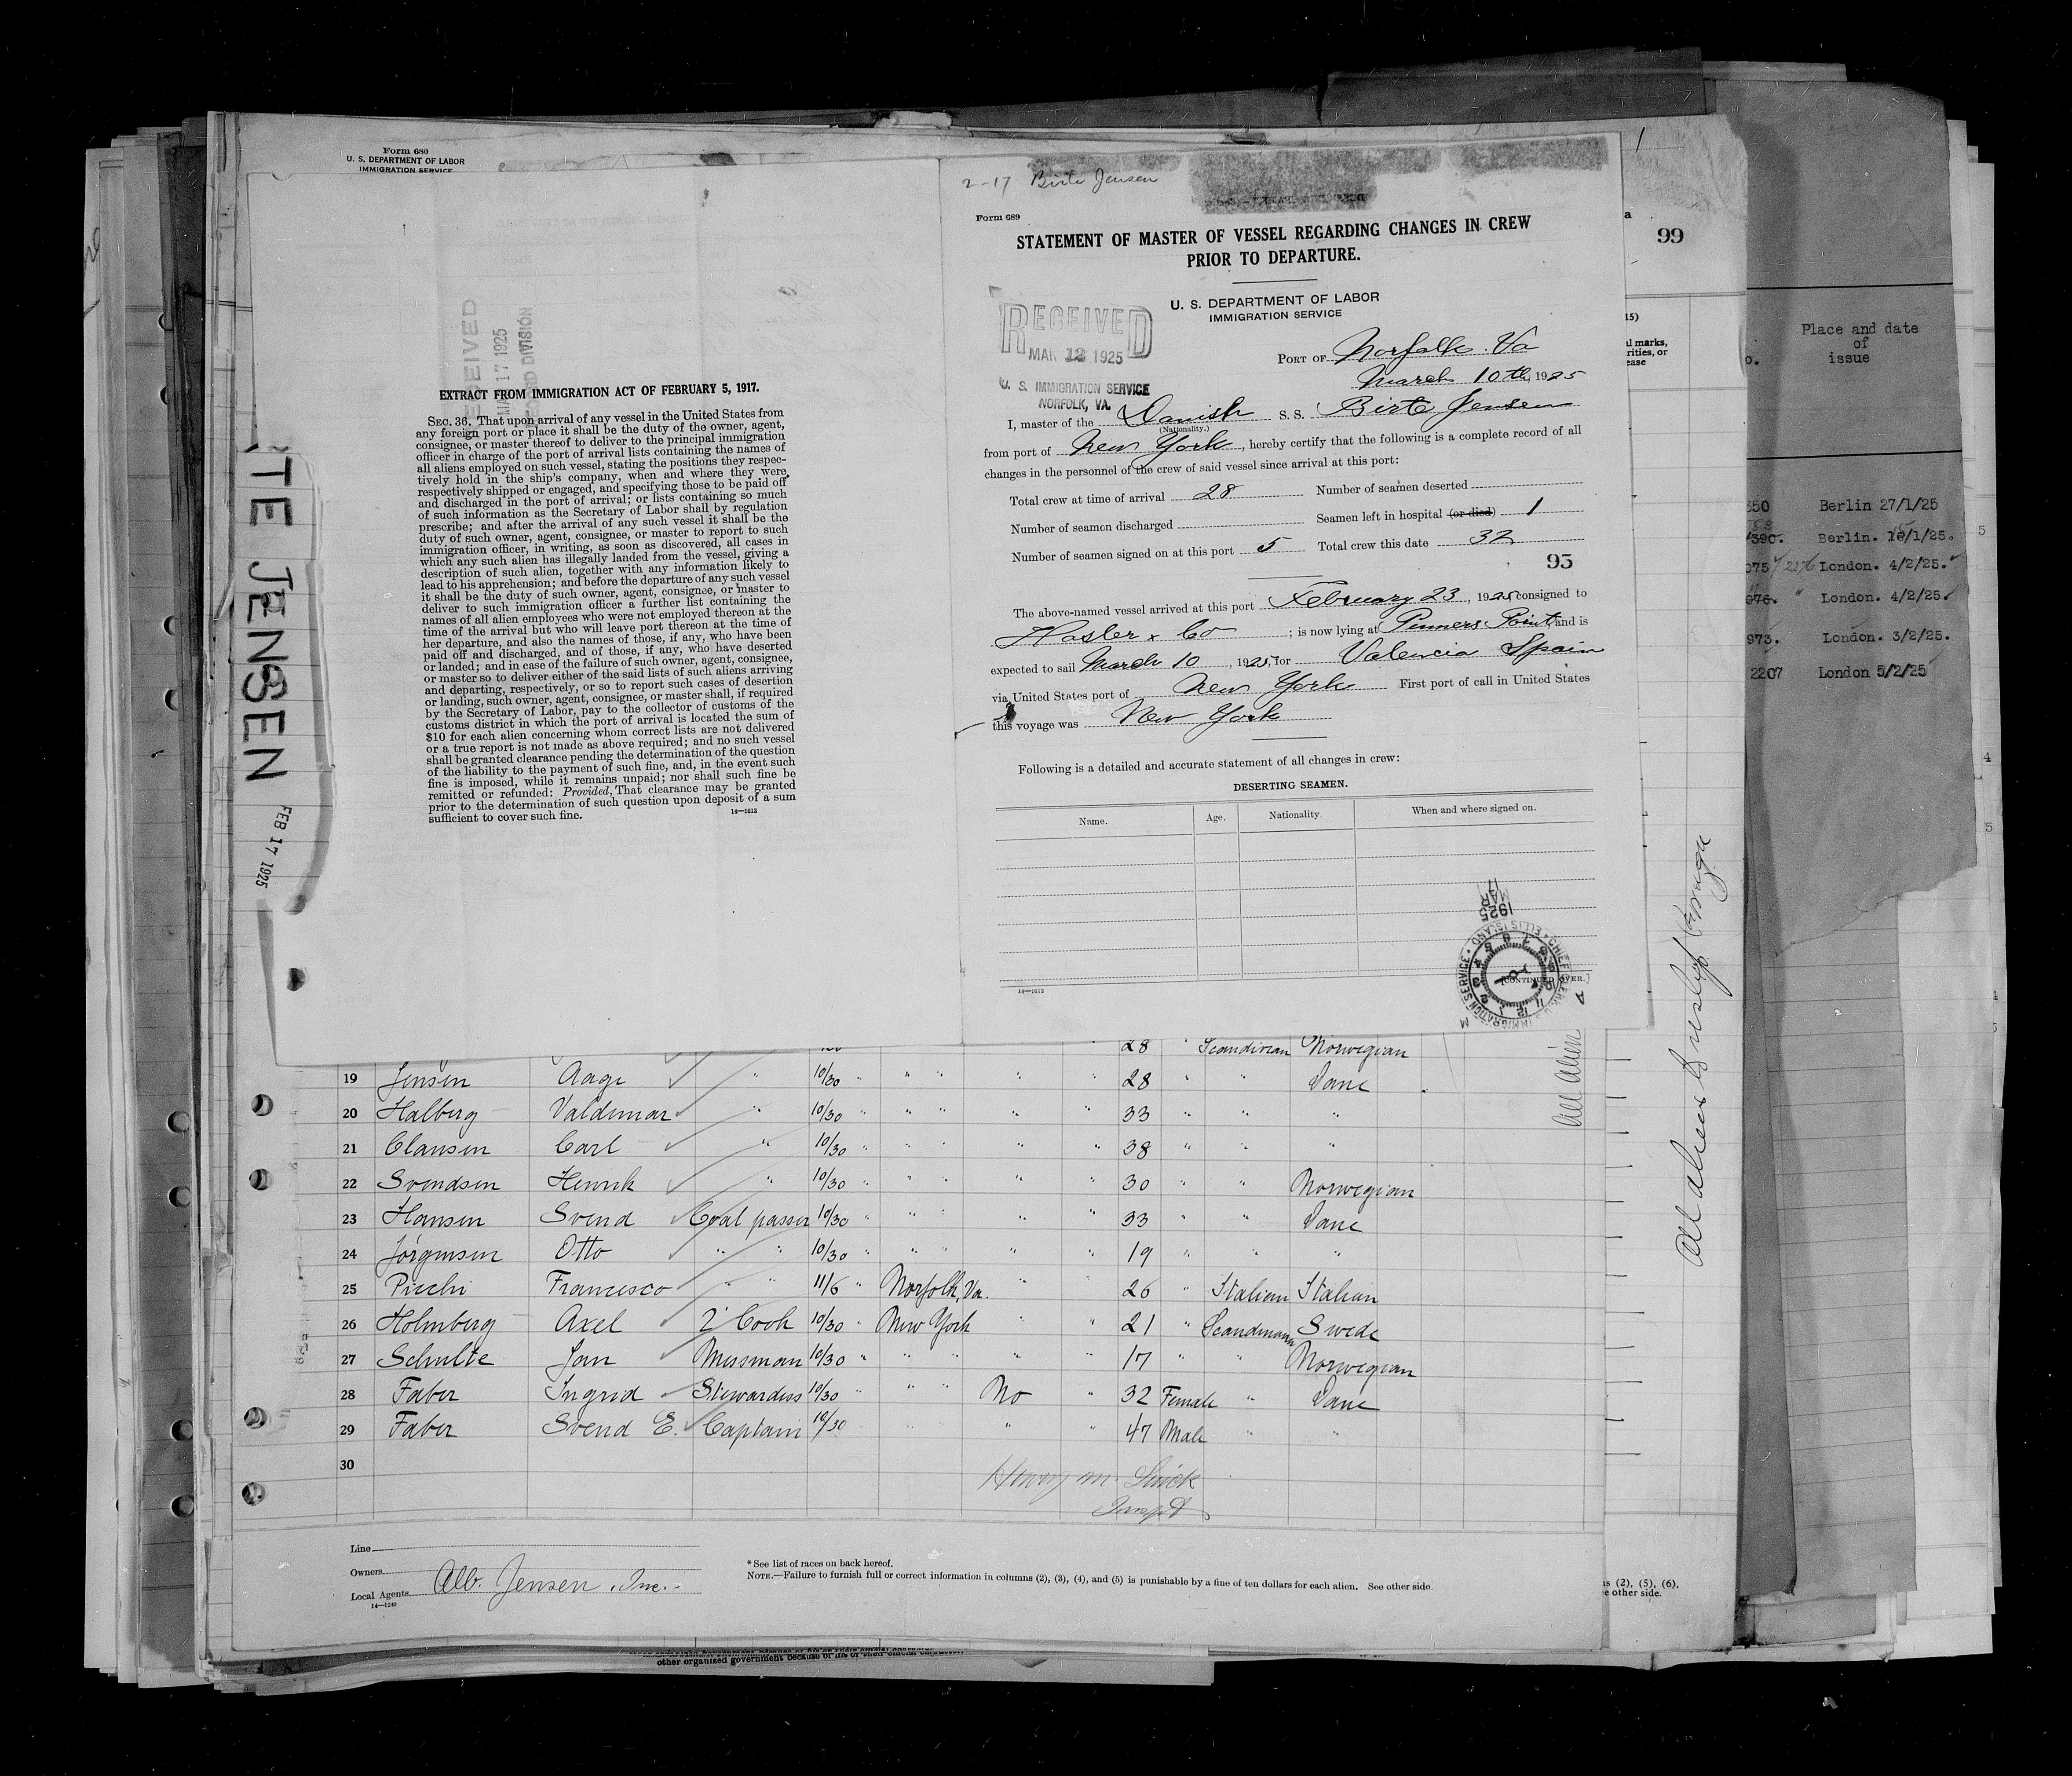 Form 680
U. S. DEPARTMENT OF LABOR
IMMIGRATION SERVICE
TE JENSEN
FEB 17 1925
RECEIVED
MAR 17 1925
RECORD DIVISION
EXTRACT FROM IMMIGRATION ACT OF FEBRUARY 5, 1917.
SEC. 36. That upon arrival of any vessel in the United States from
any foreign port or place it shall be the duty of the owner, agent,
consignee, or master thereof to deliver to the principal immigration
officer in charge of the port of arrival lists containing the names of
all aliens employed on such vessel, stating the positions they respec-
tively hold in the ship's company, when and where they were
respectively shipped or engaged, and specifying those to be paid off
and discharged in the port of arrival; or lists containing so much
of such information as the Secretary of Labor shall by regulation
prescribe; and after the arrival of any such vessel it shall be the
duty of such owner, agent, consignee, or master to report to such
immigration officer, in writing, as soon as discovered, all cases in
which any such alien has illegally landed from the vessel, giving a
description of such alien, together with any information likely to
lead to his apprehension; and before the departure of any such vessel
it shall be the duty of such owner, agent, consignee, or master to
deliver to such immigration officer a further list containing the
names of all alien employees who were not employed thereon at the
time of the arrival but who will leave port thereon at the time of
her departure, and also the names of those, if any, who have been
paid off and discharged, and of those, if any, who have deserted
or landed; and in case of the failure of such owner, agent, consignee,
or master so to deliver either of the said lists of such aliens arriving
and departing, respectively, or so to report such cases of desertion
or landing, such owner, agent, consignee, or master shall, if required
by the Secretary of Labor, pay to the collector of customs of the
customs district in which the port of arrival is located the sum of
$10 for each alien concerning whom correct lists are not delivered
or a true report is not made as above required; and no such vessel
shall be granted clearance pending the determination of the question
of the liability to the payment of such fine, and, in the event such
fine is imposed, while it remains unpaid; nor shall such fine be
remitted or refunded: Provided, That clearance may be granted
prior to the determination of such question upon deposit of a sum
sufficient to cover such fine.
14—1613
2-17 Birte Jensen
Form 689
STATEMENT OF MASTER OF VESSEL REGARDING CHANGES IN CREW
PRIOR TO DEPARTURE.
U. S. DEPARTMENT OF LABOR
IMMIGRATION SERVICE
RECEIVED
MAR 12 1925
U. S. IMMIGRATION SERVICE
NORFOLK, VA.
PORT OF Norfolk Va
March 10th, 1925
I, master of the Danish S. S. Birte Jensen
(Nationality.)
from port of New York, hereby certify that the following is a complete record of all
changes in the personnel of the crew of said vessel since arrival at this port:
Total crew at time of arrival 28 Number of seamen deserted
Number of seamen discharged Seamen left in hospital (or died) 1
Number of seamen signed on at this port 5 Total crew this date 32
95
The above-named vessel arrived at this port February 23, 1925 consigned to
Hasler & Co; is now lying at Pinners Point, and is
expected to sail March 10, 1925, for Valencia Spain
via United States port of New York First port of call in United States
this voyage was New York
Following is a detailed and accurate statement of all changes in crew:
DESERTING SEAMEN.
Name. Age. Nationality. When and where signed on.
[CONTINUED OVER.]
14—1613
1925 MAR 17
IMMIGRATION SERVICE ELLIS ISLAND CHIEF CLERK
99
Place and date
of
issue
350 Berlin 27/1/25
390. Berlin. 15/1/25.
075 2276 London. 4/2/25.
076. " London. 4/2/25.
973. London. 3/2/25.
2207 London 5/2/25
28 " Scandinian Norwegian
19 Jensen Aage " 10/30 " " " " " 28 " " Dane
20 Halberg Valdemar " 10/30 " " " " " 33 " " "
21 Clausen Carl " 10/30 " " " " " 38 " " "
22 Svendsen Henrik " 10/30 " " " " " 30 " " Norwegian
23 Hansen Svend Coal passer 10/30 " " " " " 33 " " Dane
24 Jørgensen Otto " " 10/30 " " " " " 19 " " "
25 Picchi Francesco " " 11/6 " Norfolk, Va. " " 26 " Italian Italian
26 Holmberg Axel 2' Cook 10/30 " New York " " 21 " Scandinavn Swede
27 Schulte Jan Messman 10/30 " " " " " 17 " " Norwegian
28 Faber Ingrid Stewardess 10/30 " " " No " 32 Female " Dane
29 Faber Svend E. Captain 10/30 " " " " 47 Male " "
30
Line
Owners
Local Agents Alb. Jensen, Inc.
14—1240
* See list of races on back hereof.
NOTE.—Failure to furnish full or correct information in columns (2), (3), (4), and (5) is punishable by a fine of ten dollars for each alien. See other side.
ns (2), (5), (6).
e other side.
other organized government because of his or their official character